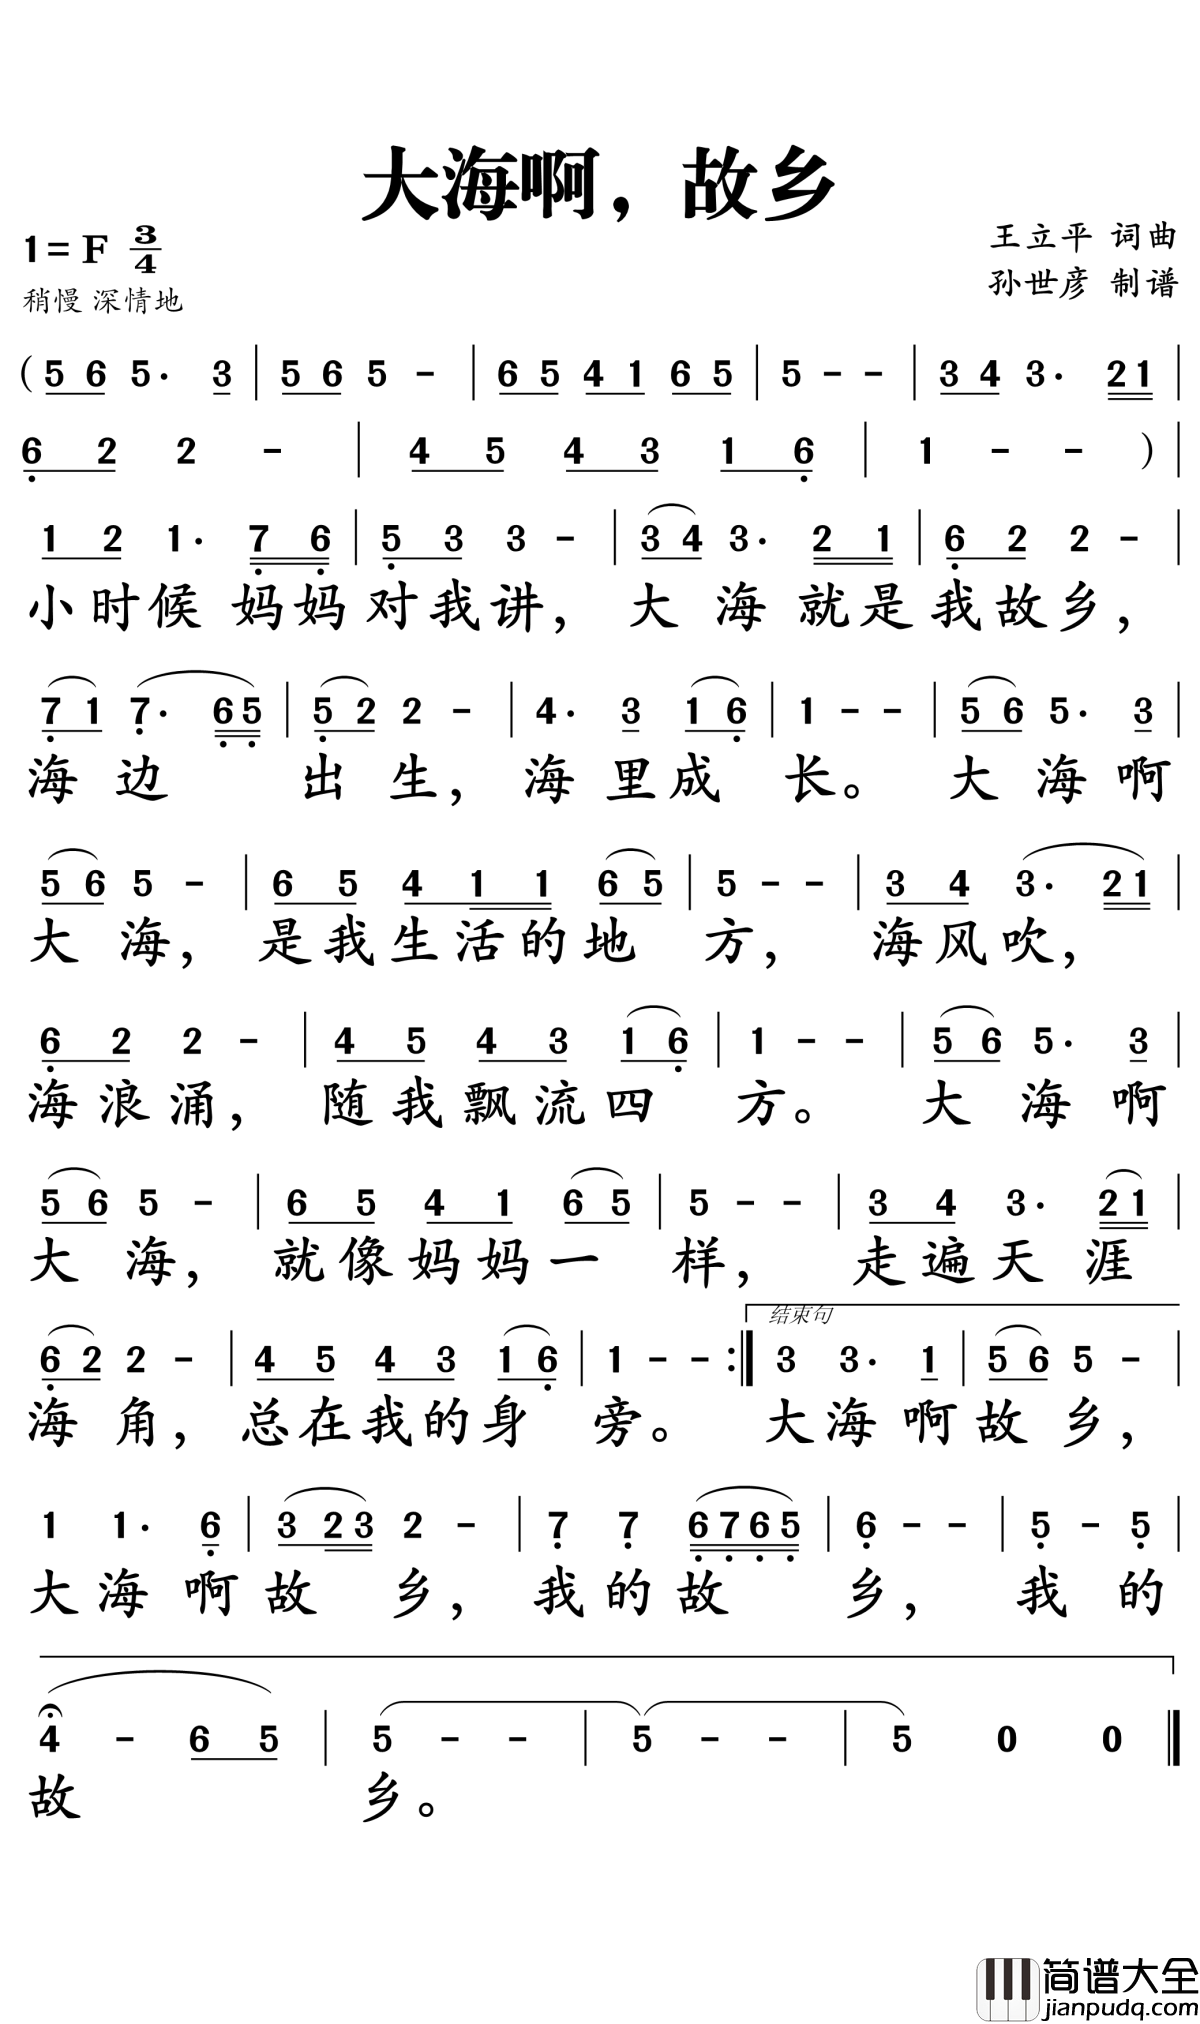 大海啊，故乡
1=F 3/4
王立平 词曲
稍慢 深情地
孙世彦 制谱
(5 6 5· 3 | 5 6 5 - | 6 5 4 1 6 5 | 5 - - | 3 4 3· 2 1 |
6 2 2 - | 4 5 4 3 1 6 | 1 - - ) |
1 2 1· 7 6 | 5 3 3 - | 3 4 3· 2 1 | 6 2 2 - |
小时候 妈妈对我讲，大海就是我故乡，
7 1 7· 6 5 | 5 2 2 - | 4· 3 1 6 | 1 - - | 5 6 5· 3 |
海边 出生，海里成长。大海啊
5 6 5 - | 6 5 4 1 1 6 5 | 5 - - | 3 4 3· 2 1 |
大海，是我生活的地方，海风吹，
6 2 2 - | 4 5 4 3 1 6 | 1 - - | 5 6 5· 3 |
海浪涌，随我飘流四方。大海啊
5 6 5 - | 6 5 4 1 6 5 | 5 - - | 3 4 3· 2 1 |
大海，就像妈妈一样，走遍天涯
结束句
6 2 2 - | 4 5 4 3 1 6 | 1 - - :| 3 3· 1 | 5 6 5 - |
海角，总在我的身旁。大海啊故乡，
1 1· 6 | 3 2 3 2 - | 7 7 6 7 6 5 | 6 - - | 5 - 5 |
大海啊故乡，我的故乡，我的
4 - 6 5 | 5 - - | 5 - - | 5 0 0 ‖
故 乡。
简谱大全
jianpudq.com